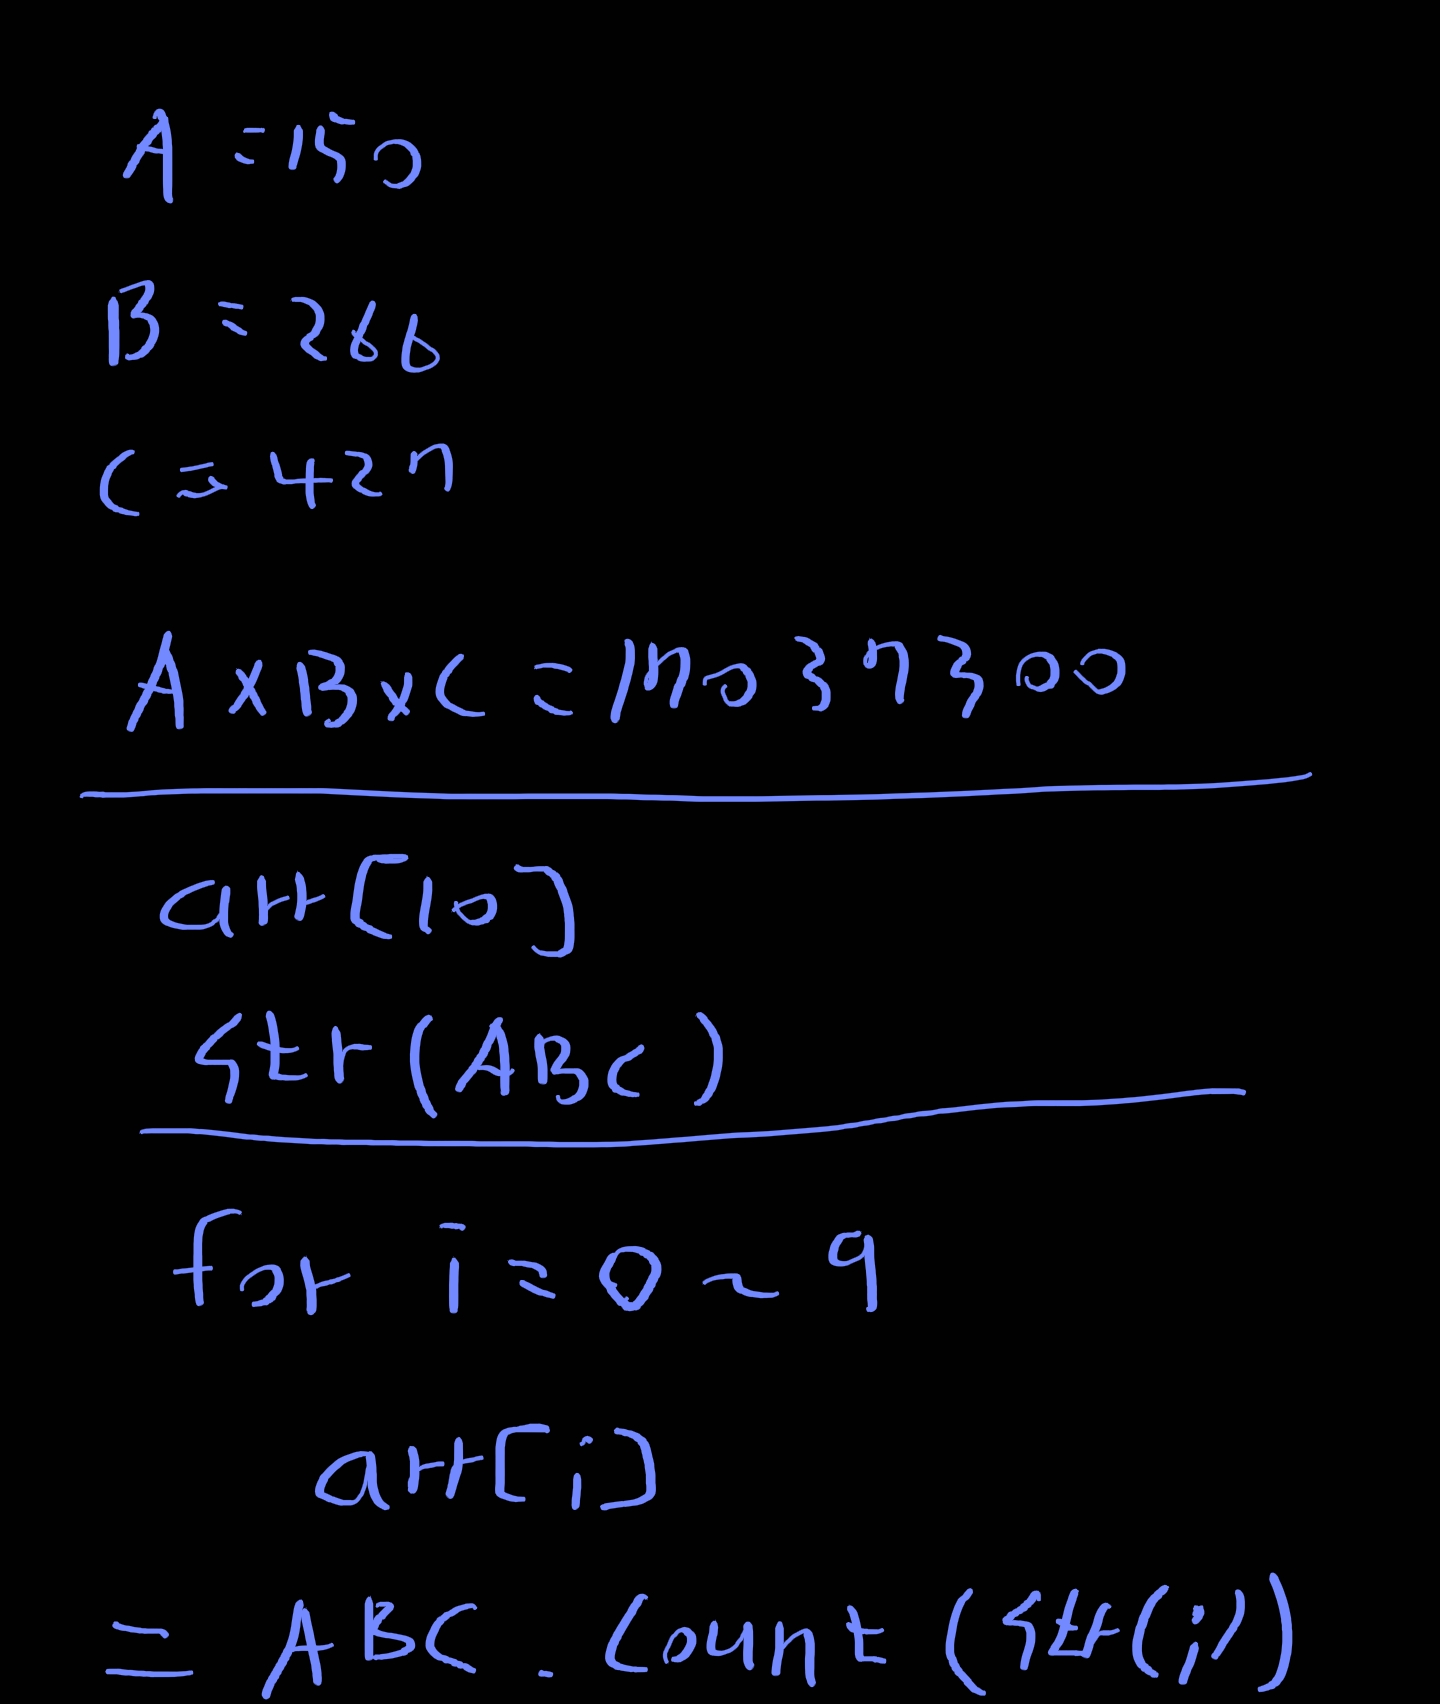 A = 150
B = 266
C = 427
A x B x C = 17037300
arr[10]
str(ABC)
for i = 0 ~ 9
arr[i]
= ABC. Count (str(i))